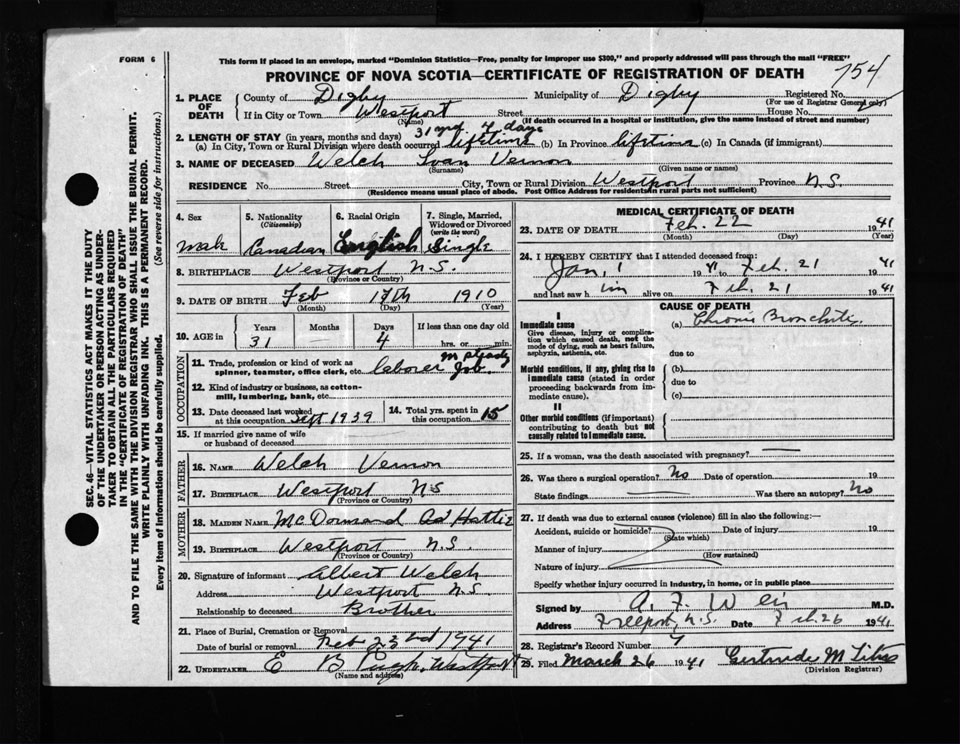 FORM 6
This form if placed in an envelope, marked "Dominion Statistics—Free, penalty for improper use $300," and properly addressed will pass through the mail "FREE"
PROVINCE OF NOVA SCOTIA—CERTIFICATE OF REGISTRATION OF DEATH
754
SEC. 46—VITAL STATISTICS ACT MAKES IT THE DUTY
OF THE UNDERTAKER OR PERSON ACTING AS UNDER-
TAKER TO OBTAIN ALL THE PARTICULARS REQUIRED
IN THE "CERTIFICATE OF REGISTRATION OF DEATH"
AND TO FILE THE SAME WITH THE DIVISION REGISTRAR WHO SHALL ISSUE THE BURIAL PERMIT.
WRITE PLAINLY WITH UNFADING INK. THIS IS A PERMANENT RECORD.
Every item of Information should be carefully supplied. (See reverse side for instructions.)
1. PLACE OF DEATH
County of Digby Municipality of Digby Registered No.
(For use of Registrar General only)
If in City or Town Westport Street House No.
(Name) (If death occurred in a hospital or institution, give the name instead of street and number)
2. LENGTH OF STAY (in years, months and days) 31 and 4 days
(a) In City, Town or Rural Division where death occurred lifetime (b) In Province lifetime (c) In Canada (if immigrant)
3. NAME OF DECEASED Welch Ivan Vernon
(Surname) (Given name or names)
RESIDENCE No. Street City, Town or Rural Division Westport Province N.S.
(Residence means usual place of abode. Post Office Address for residents in rural parts not sufficient)
4. Sex 5. Nationality 6. Racial Origin 7. Single, Married,
(Citizenship) Widowed or Divorced
(write the word)
Male Canadian English Single
8. BIRTHPLACE Westport N.S.
(Province or Country)
9. DATE OF BIRTH Feb 17th 1910
(Month) (Day) (Year)
10. AGE in Years Months Days If less than one day old
31 4 hrs. or min.
OCCUPATION
11. Trade, profession or kind of work as laborer
spinner, teamster, office clerk, etc. steady Job
12. Kind of industry or business, as cotton-
mill, lumbering, bank, etc.
13. Date deceased last worked at this occupation Sept 1939 14. Total yrs. spent in this occupation 15
15. If married give name of wife
or husband of deceased
FATHER
16. NAME Welch Vernon
17. BIRTHPLACE Westport NS
(Province or Country)
MOTHER
18. MAIDEN NAME McDormand Hattie
19. BIRTHPLACE Westport N.S.
(Province or Country)
20. Signature of informant Albert Welch
Address Westport N.S.
Relationship to deceased Brother
21. Place of Burial, Cremation or Removal
Date of burial or removal Feb 23rd 1941
22. UNDERTAKER E B Pugh, Westport
(Name and address)
MEDICAL CERTIFICATE OF DEATH
23. DATE OF DEATH Feb. 22 1941
(Month) (Day) (Year)
24. I HEREBY CERTIFY that I attended deceased from:
Jan, 1 1941 to Feb. 21 1941
and last saw him alive on Feb. 21 1941
CAUSE OF DEATH
I
Immediate cause (a) Chronic Bronchitis
Give disease, injury or complica-
tion which caused death, not the
mode of dying, such as heart failure,
asphyxia, asthenia, etc. due to
Morbid conditions, if any, giving rise to (b)
immediate cause (stated in order due to
proceeding backwards from im-
mediate cause). (c)
II
Other morbid conditions (if important)
contributing to death but not
causally related to immediate cause.
25. If a woman, was the death associated with pregnancy?
26. Was there a surgical operation? No Date of operation 19
State findings Was there an autopsy? No
27. If death was due to external causes (violence) fill in also the following:—
Accident, suicide or homicide? Date of injury 19
(State which)
Manner of injury
(How sustained)
Nature of injury
Specify whether injury occurred in industry, in home, or in public place
Signed by A. F. Weir M.D.
Address Freeport, N.S. Date Feb. 26 1941
28. Registrar's Record Number 7
29. Filed March 26 1941 Gertrude M Titus
(Division Registrar)